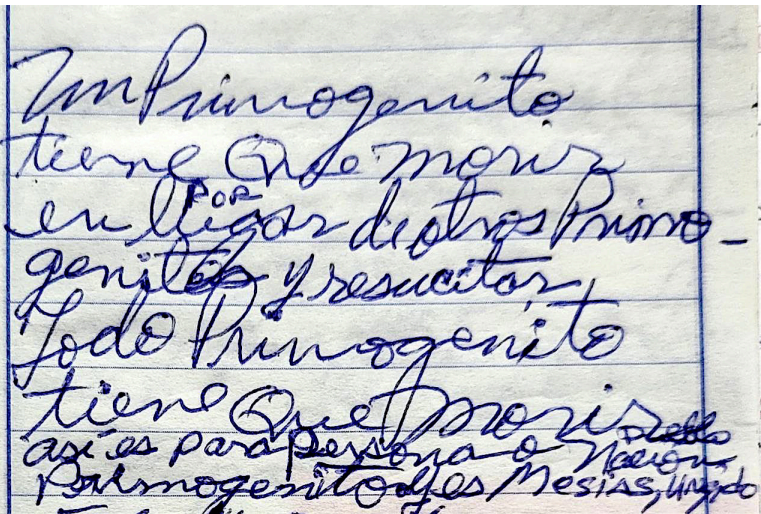 Un Primogenito
tiene Que morir
POR
en lugar de otros Primo-
genitos y resucitar,
Todo Primogenito
tiene Que morir
Pueblo
así es para persona o Nacion
Primogenito y es Mesias, Ungido